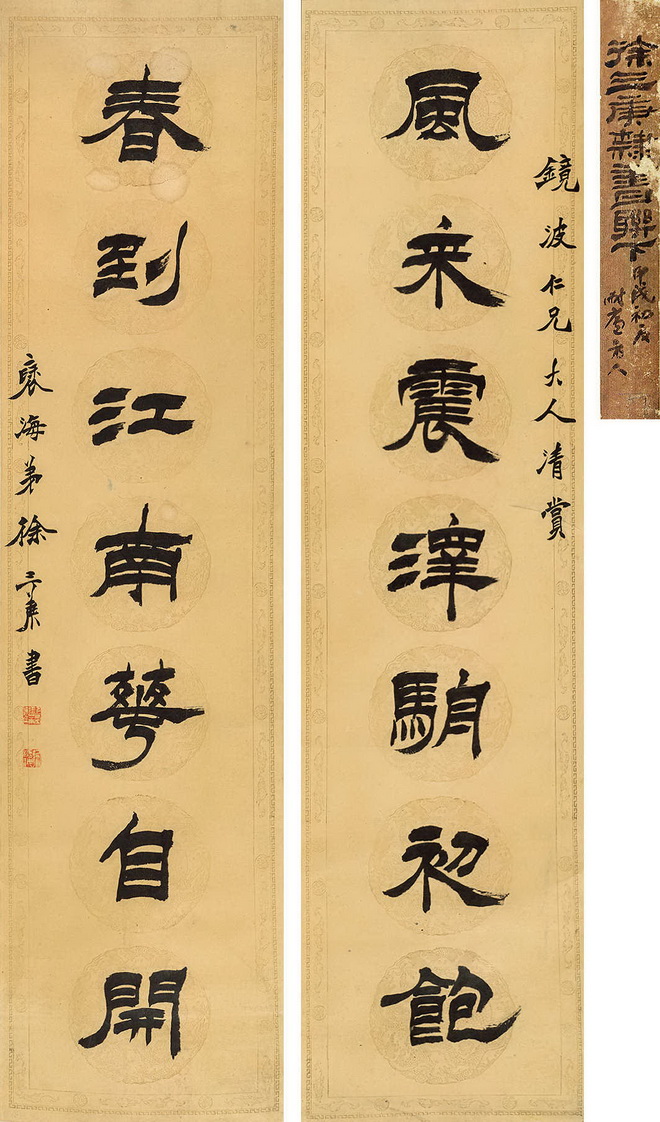 徐三庚隸書聯下
甲戌初
鏡波仁兄大人清賞
風來震澤初飽
春到江南華自開
褎海弟徐三庚書